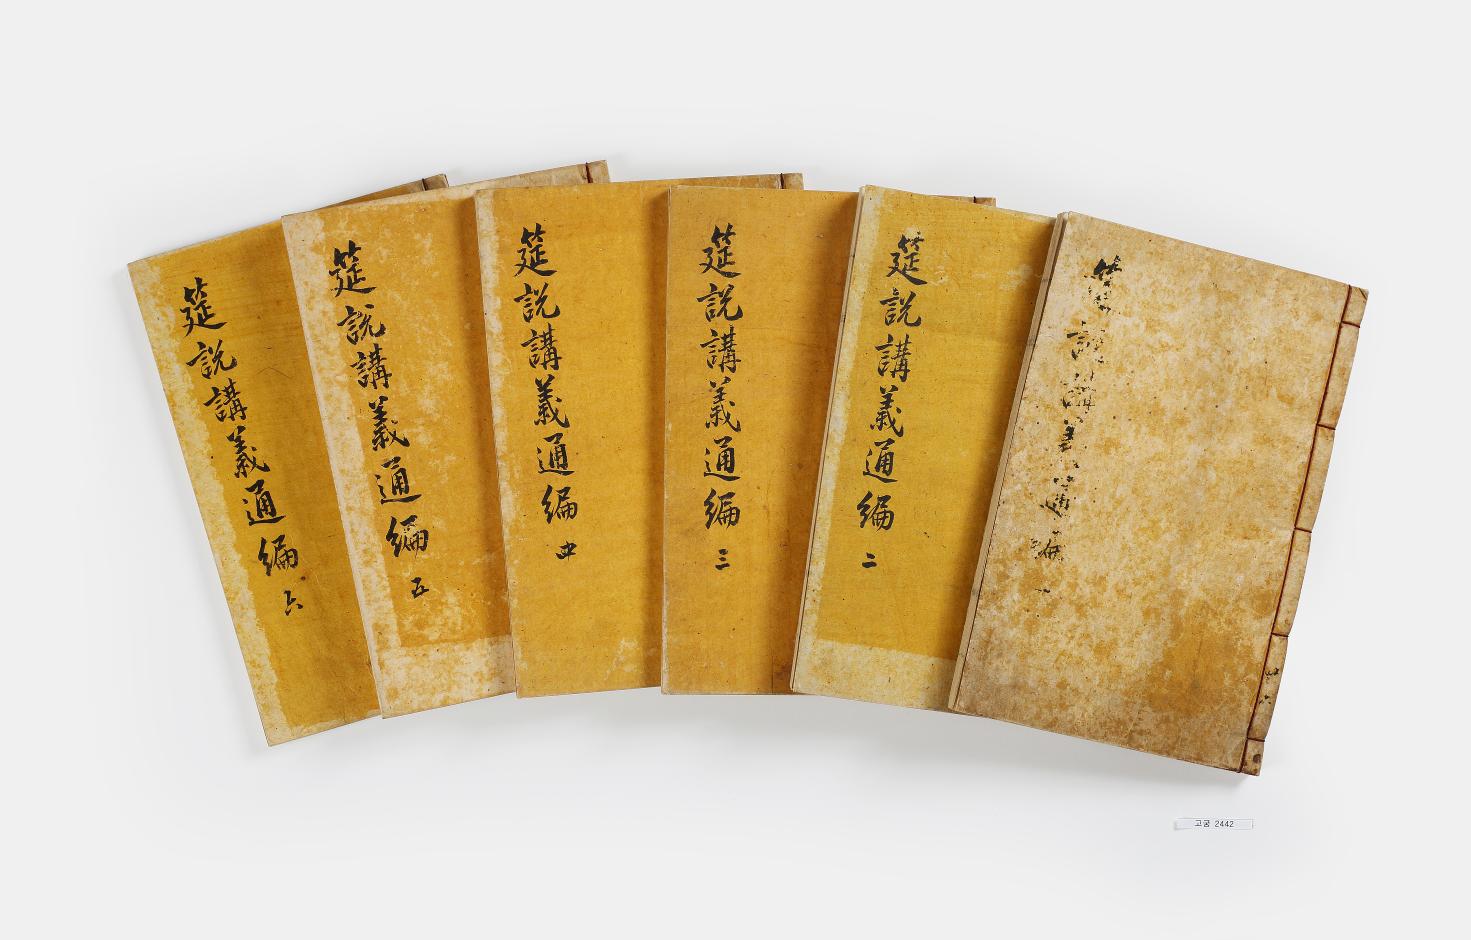 筵說講義通編 一
筵說講義通編 二
筵說講義通編 三
筵說講義通編 四
筵說講義通編 五
筵說講義通編 六
고궁 2442